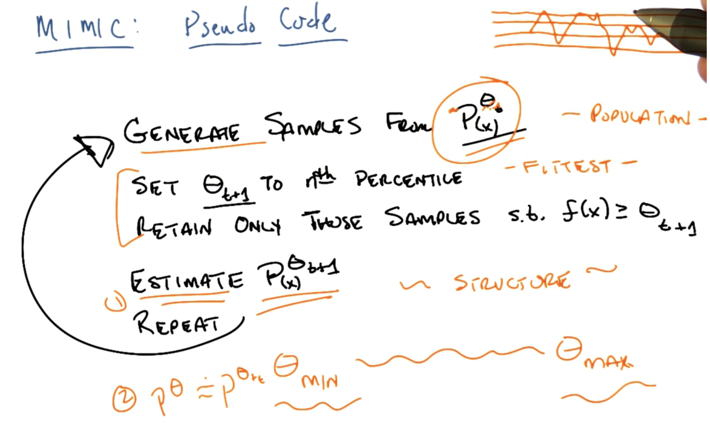 MIMIC: Pseudo Code
GENERATE SAMPLES FROM P^θt(x) - POPULATION -
SET θt+1 TO nth PERCENTILE - FITTEST -
RETAIN ONLY THOSE SAMPLES s.t. f(x) ≥ θt+1
① ESTIMATE P^θt+1(x) ~ STRUCTURE ~
REPEAT
② P^θ ≐ P^θt+ε θMIN θMAX